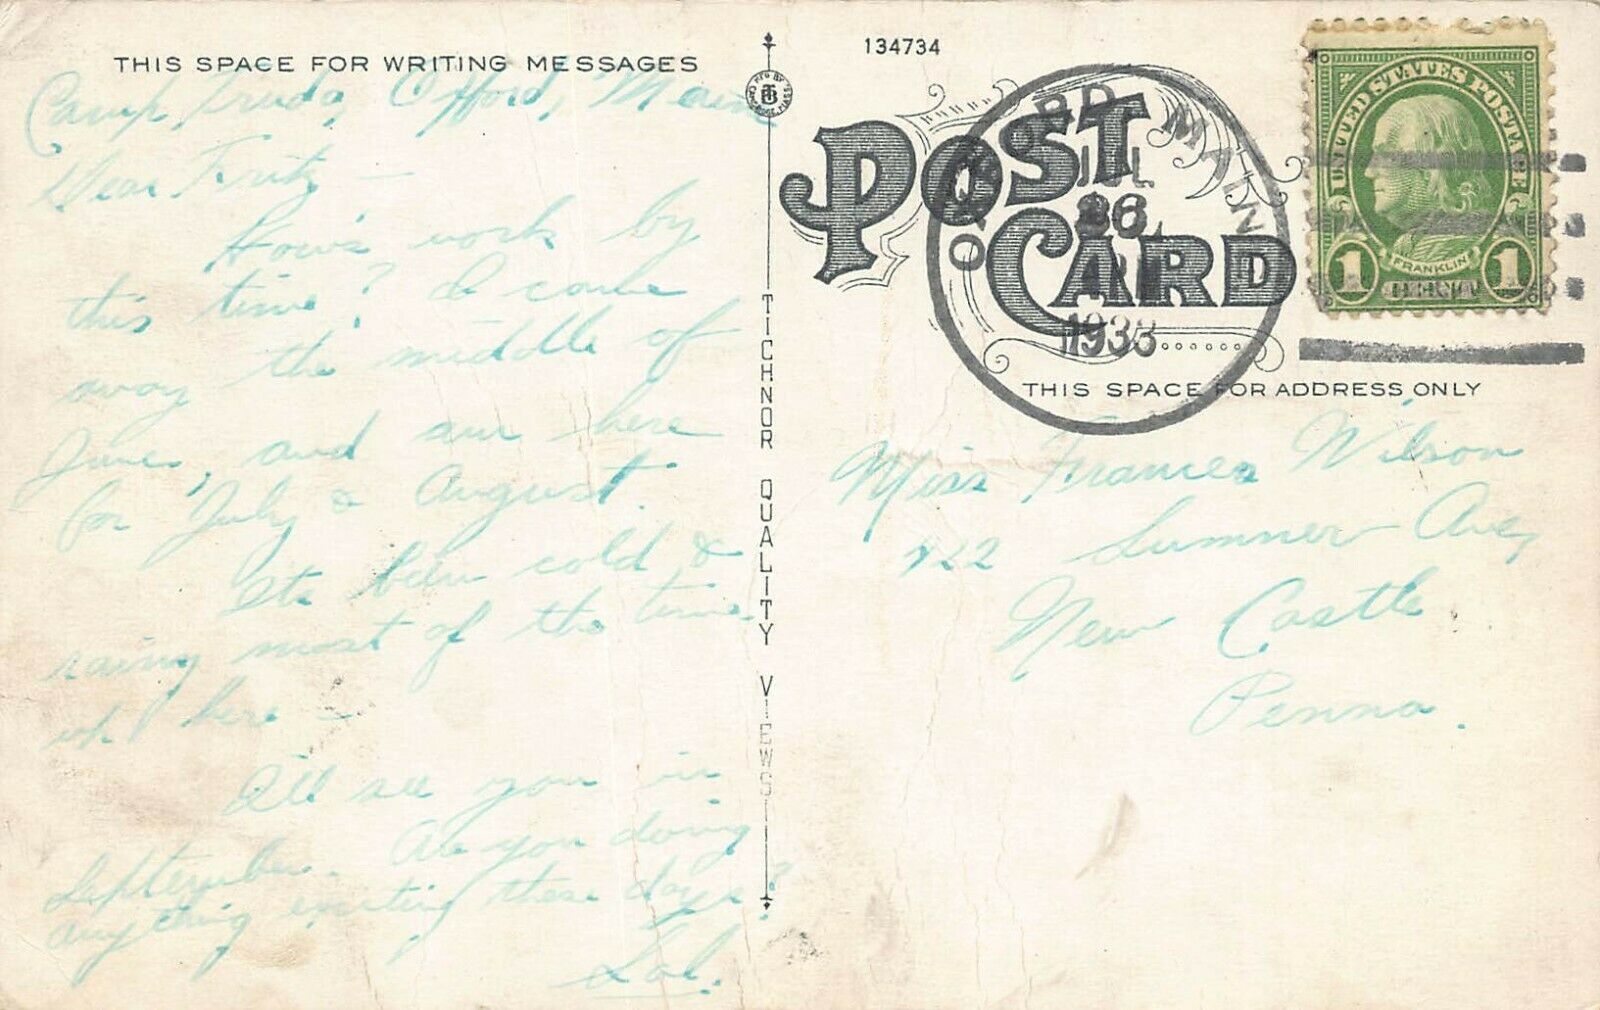 THIS SPACE FOR WRITING MESSAGES
134734
Camp Truda, Oxford, Maine
Dear Fritz —
How's work by
this time? I came
away the middle of
June, and am here
for July & August.
Its been cold &
rainy most of the time
up here —
I'll see you in
September. Are you doing
anything exciting these days?
TICHNOR QUALITY VIEWS
POST CARD
OXFORD MAINE
JUL
26
1933
UNITED STATES POSTAGE
FRANKLIN
1 1
THIS SPACE FOR ADDRESS ONLY
Miss Frances Wilson
122 Sumner Ave,
New Castle
Penna.